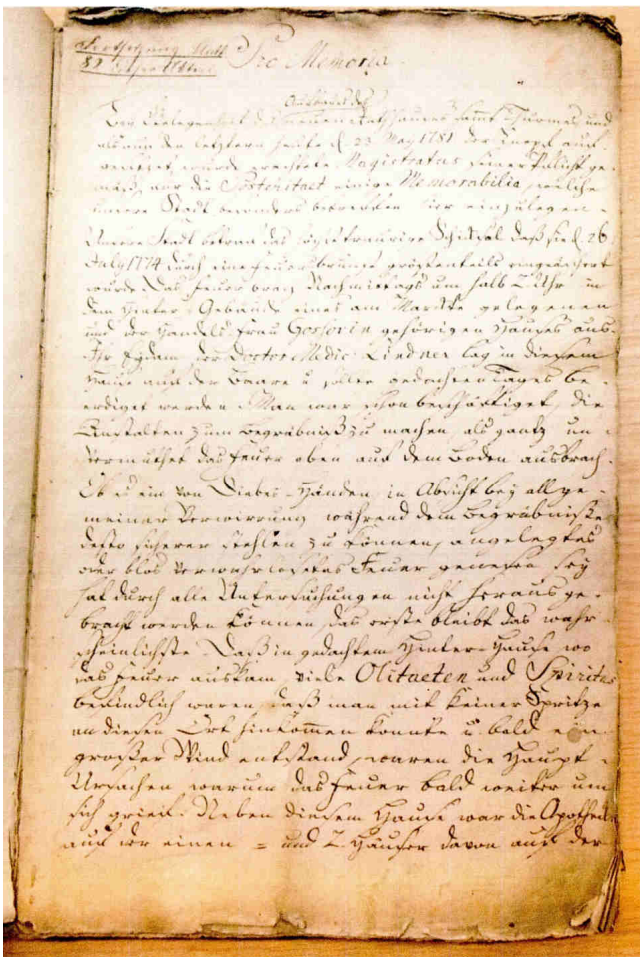 Fortsetzung Statt
Pro Memoria.
Aufbaues des
Bey Gelegenheit des neuen Rath Hauses samt Thurmes und
als auf den letztern heute d. 23 May 1781 der Knopf auf-
gesetzet wurde erachtete Magistratus seiner Pflicht ge-
mäß, vor die Posteritaet einige Memorabilia, welche
unsere Stadt besonders betreffen hier einzulegen.
Unsere Stadt betraf das höchst traurige Schicksal daß sie d. 26
July 1774 durch eine Feuersbrunst größtenteils eingeäschert
wurde. Das Feuer brach Nachmittags um halb 2 Uhr in
dem Hinter-Gebäude eines am Markte gelegenen
und der Handels Frau gehörigen Hauses aus.
Ihr Eydam der Doctor Medic: Lindner lag in diesem
Hause auf der Baare u. sollte gedachten Tages be-
erdiget werden. Man war schon beschäftiget, die
Anstalten zum Begräbniß zu machen, als gantz un-
vermuthet das Feuer oben auf dem Boden ausbrach.
Ob es ein von Diebes-Händen, in Absicht bey allge-
meiner Verwirrung während dem Begräbniße
desto sicherer stehlen zu können, angelegtes
oder blos verwahrlosetes Feuer gewesen sey
hat durch alle Untersuchungen nicht heraus ge-
bracht werden können, das erste bleibt das wahr-
scheinlichste. Daß in gedachtem Hinter-Hause wo
das Feuer auskam, viele Olitaeten und Spiritus
befindlich waren, daß man mit keiner Spritze
an diesen Ort hinkommen konnte u. bald ein
großer Wind entstand, waren die Haupt-
Ursachen, warum das Feuer bald weiter um
sich grieff. Neben diesem Hause war die Apotheck
auf der einen = und 2 Häuser davon auf der